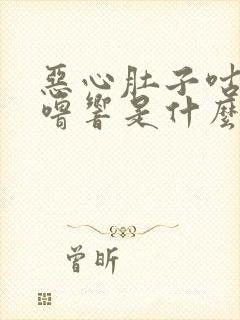 惡心肚子咕
嚕響是什麼
曾昕